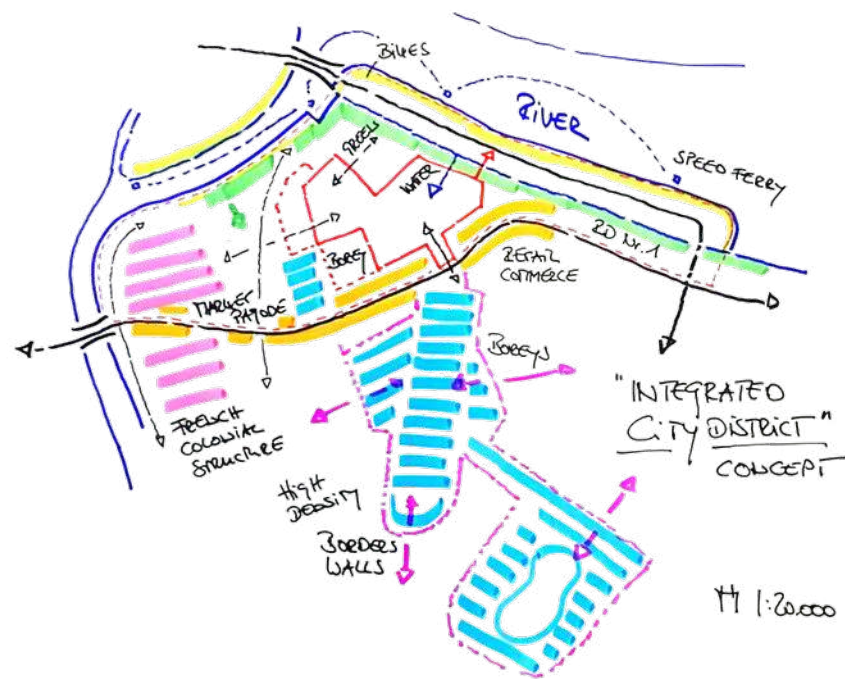 BIKES
RIVER
SPEED FERRY
GREEN
WATER
RD Nr. 1
BOREY
RETAIL
COMMERCE
MARKET
PAGODE
BOREYS
FRENCH
COLONIAL
STRUCTURE
HIGH
DENSITY
BORDERS
WALLS
"INTEGRATED
CITY DISTRICT"
CONCEPT
M 1:20.000